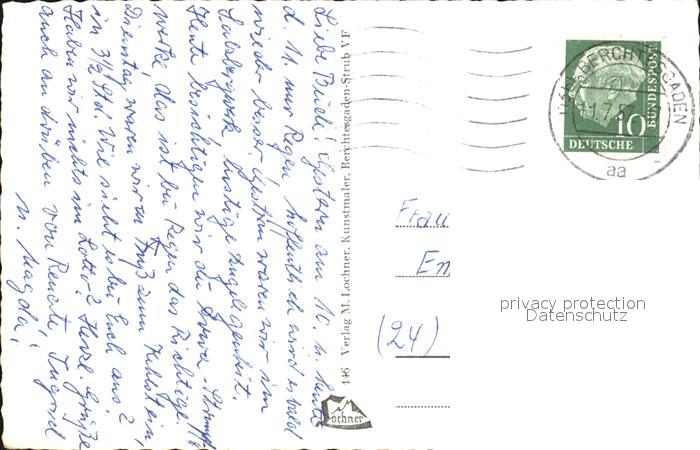 Liebe Heidi! Gestern am 10. u. heute
d. 11. nur Regen hoffentlich wird es bald
wieder besser. Gestern waren wir im
Salzbergwerk lustige Angelegenheit.
Heute besichtigen wir die
werke das ist bei Regen das Richtige.
Dienstag waren wir zu Fuß zum Kehlstein,
in 3½ Std. Wie sieht es bei Euch aus?
Haben wir nichts im Lotto? Herzl. Grüße
auch an drüben von Renate, Ingrid
u. Magda!
146 Verlag M. Lochner, Kunstmaler, Berchtesgaden-Strub V.F
Lochner
BERCHTESGADEN
11.7.5
aa
10
BUNDESPOST
DEUTSCHE
Frau
Em
(24)
privacy protection
Datenschutz